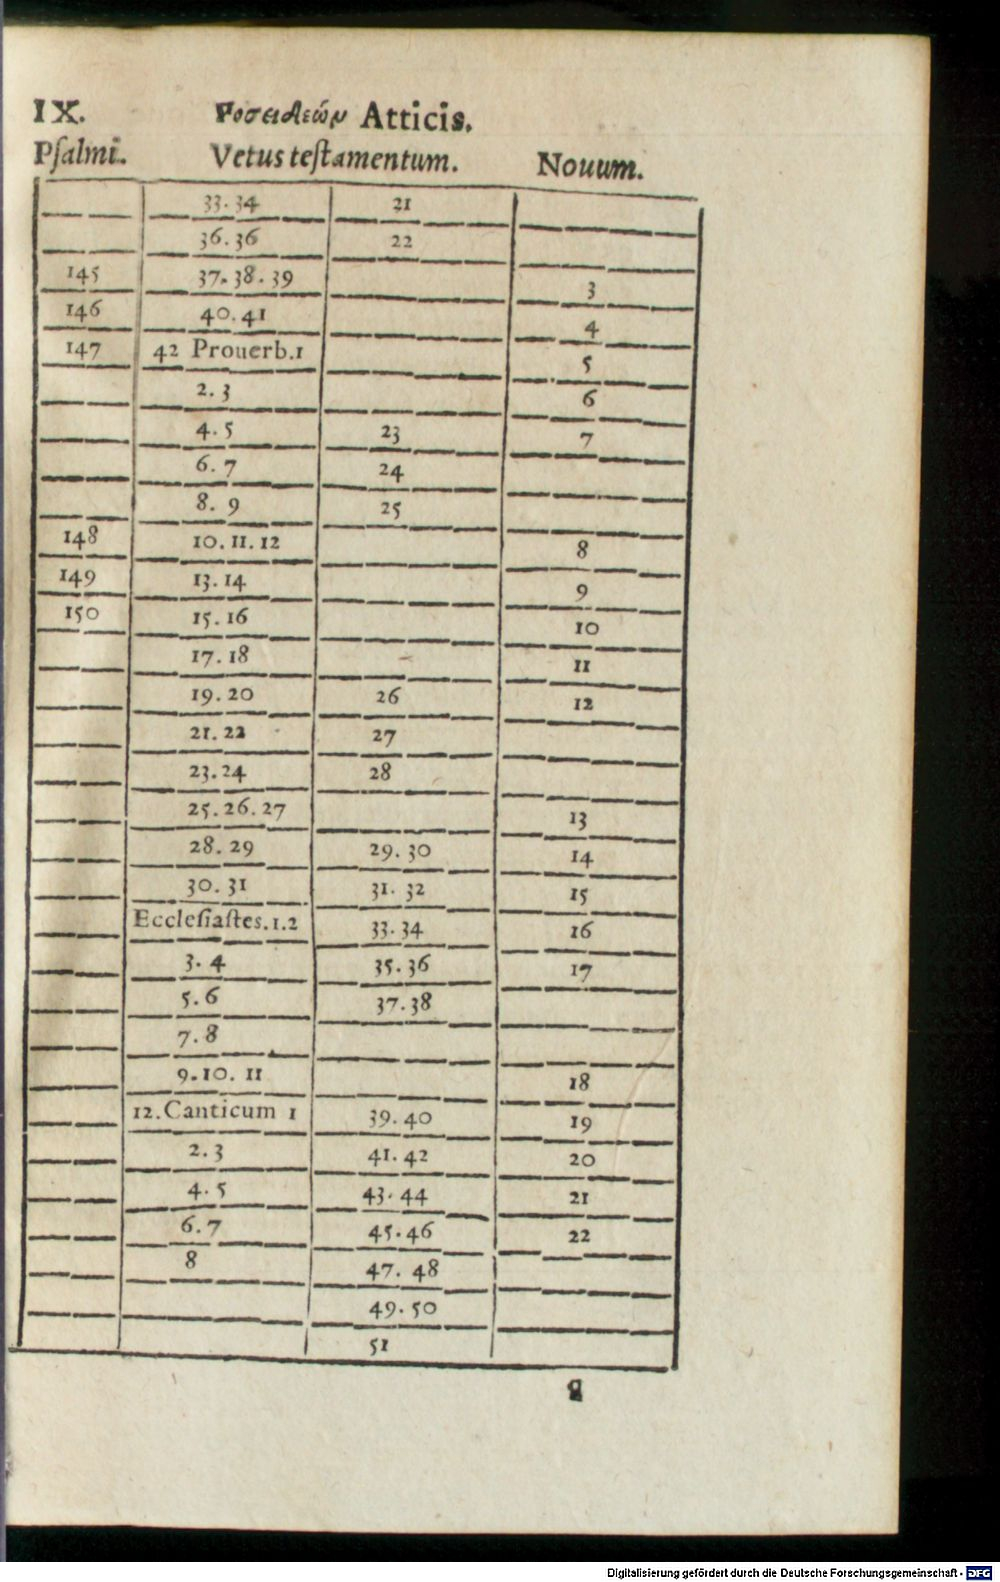 IX. Ποσειδεών Atticis.
Pſalmi. Vetus teſtamentum. Nouum.
33. 34 21
36. 36 22
145 37. 38. 39 3
146 40. 41 4
147 42 Prouerb. 1 5
2. 3 6
4. 5 23 7
6. 7 24
8. 9 25
148 10. 11. 12 8
149 13. 14 9
150 15. 16 10
17. 18 11
19. 20 26 12
21. 22 27
23. 24 28
25. 26. 27 13
28. 29 29. 30 14
30. 31 31. 32 15
Eccleſiaſtes. 1. 2 33. 34 16
3. 4 35. 36 17
5. 6 37. 38
7. 8
9. 10. 11 18
12. Canticum 1 39. 40 19
2. 3 41. 42 20
4. 5 43. 44 21
6. 7 45. 46 22
8 47. 48
49. 50
51
Digitalisierung gefördert durch die Deutsche Forschungsgemeinschaft - DFG